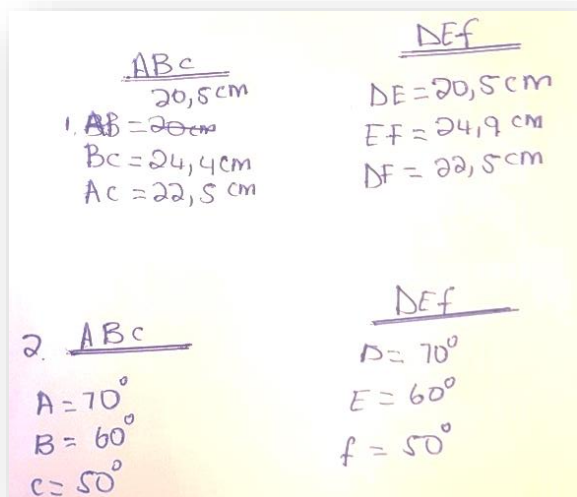 ABc
20,5cm
1. AB = 20cm
Bc = 24,4cm
Ac = 22,5 cm
DEf
DE = 20,5cm
Ef = 24,9 cm
DF = 22,5cm
2. ABc
A = 70°
B = 60°
c = 50°
DEf
D = 70°
E = 60°
f = 50°